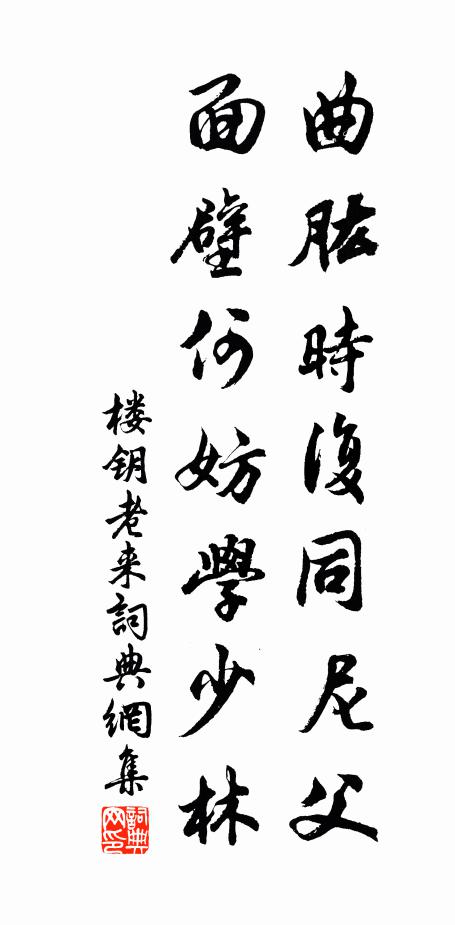 曲肱時復同尼父
面壁何妨學少林
楼钥老来詞典網集
詞典
网印